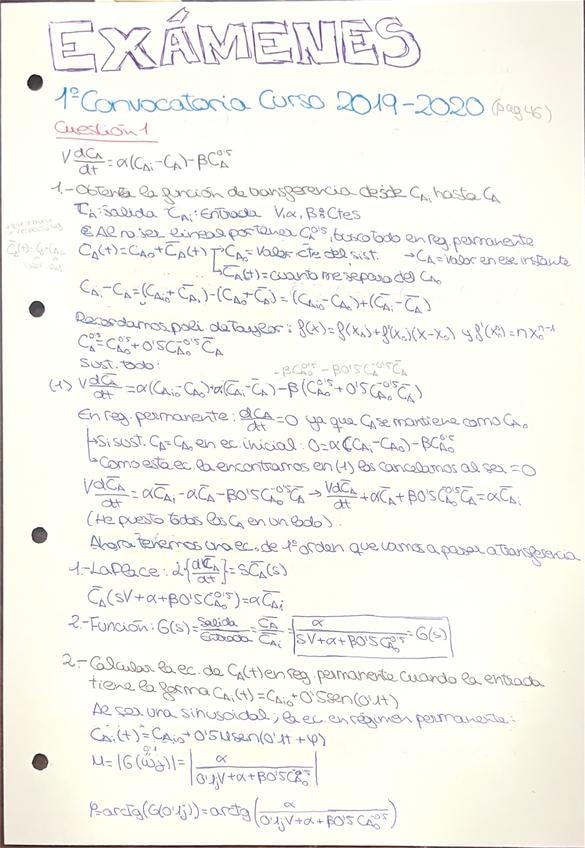 EXÁMENES
1ª Convocatoria Curso 2019-2020 (pag 46)
Cuestión 1
V dC_A/dt = α(C_Ai - C_A) - βC_A^0'5
1.- Obtener la función de transferencia desde C_Ai hasta C_A
C_A: salida C_Ai: Entrada V, α, β: Ctes
Al no ser lineal por tener C_A^0'5, busco todo en reg. permanente
C_A(t) = C_A0 + C̄_A(t) → C_A0 = Valor cte del sist. → C_A = Valor en ese instante
↳ C̄_A(t) = cuanto me separo del C_A0
C_Ai - C_A = (C_Ai0 + C̄_Ai) - (C_A0 + C̄_A) = (C_Ai0 - C_A0) + (C̄_Ai - C̄_A)
Recordamos poli. de Taylor: f(x) = f(x_0) + f'(x_0)(x - x_0) y f'(x_0^n) = n x_0^n-1
C_A^0'5 = C_A0^0'5 + 0'5C_A0^-0'5 C̄_A
Sust. todo: -βC_A0^0'5 - β0'5C_A0^-0'5 C̄_A
(-1) V dC̄_A/dt = α(C_Ai0 - C_A0) + α(C̄_Ai - C̄_A) - β(C_A0^0'5 + 0'5C_A0^-0'5 C̄_A)
En reg. permanente: dC_A/dt = 0 ya que C_A se mantiene como C_A0
↳ Si sust. C_A = C_A0 en ec. inicial: 0 = α(C_Ai - C_A0) - βC_A0^0'5
↳ Como esta ec. la encontramos en (-1) los cancelamos al ser = 0
V dC̄_A/dt = αC̄_Ai - αC̄_A - β0'5C_A0^-0'5 C̄_A → V dC̄_A/dt + αC̄_A + β0'5C_A0^-0'5 C̄_A = αC̄_Ai
(He puesto todos los C_A en un lado).
Ahora tenemos una ec. de 1º orden que vamos a pasar a transferencia
1.- LaPlace: L{dC̄_A/dt} = sC̄_A(s)
C̄_A(sV + α + β0'5C_A0^-0'5) = αC̄_Ai
2.- Función: G(s) = Salida/Entrada = C̄_A/C̄_Ai = α/(sV + α + β0'5C_A0^-0'5) = G(s)
2.- Calcular la ec. de C_A(t) en reg. permanente cuando la entrada
tiene la forma C_Ai(t) = C_Ai0 + 0'5sen(0'1t)
Al ser una sinusoidal, la ec. en régimen permanente:
C_Ai(t) = C_Ai0 + 0'5Msen(0'1t + φ)
M = |G(ωj)| = |α/(0'1jV + α + β0'5C_A0^-0'5)|
φ = arctg(G(0'1j)) = arctg(α/(0'1jV + α + β0'5C_A0^-0'5))